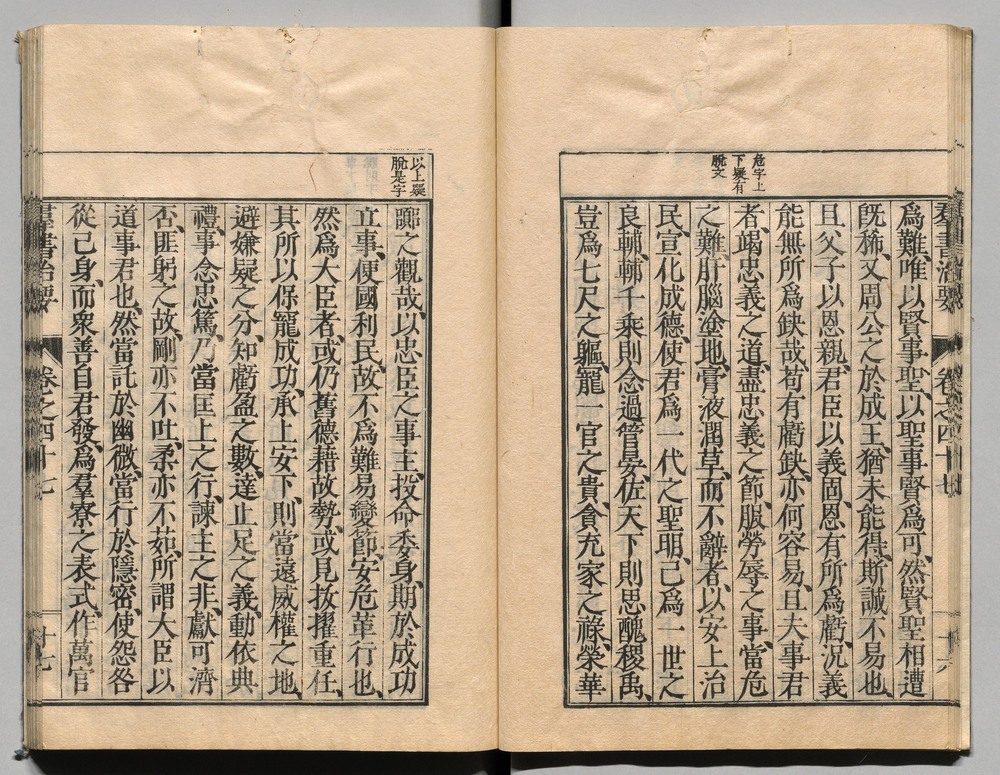 群書治要 卷之四十七 十六
危字上
下疑有
脫文
爲難、唯以賢事聖、以聖事賢爲可、然賢聖相遭
既稀、又周公之於成王、猶未能得、斯誠不易也、
且父子以恩親、君臣以義固、恩有所爲虧、況義
能無所爲缺哉、苟有虧缺、亦何容易、且夫事君
者、竭忠義之道、盡忠義之節、服勞辱之事、當危
之難、肝腦塗地、膏液潤草、而不辭者、以安上治
民、宣化成德、使君爲一代之聖明、己爲一世之
良輔、輔千乘則念過管晏、佐天下則思醜稷禹、
豈爲七尺之軀、寵一官之貴、貪充家之祿、榮華
以上疑
脫是字
囂之觀哉、以忠臣之事主、投命委身、期於成功
立事、便國利民、故不爲難易變節、安危革行也、
然爲大臣者、或仍舊德藉故勢、或見拔擢重任、
其所以保寵成功、承上安下、則當遠威權之地、
避嫌疑之分、知虧盈之數、達止足之義、動依典
禮、事念忠篤、乃當匡上之行、諫主之非、獻可濟
否、匪躬之故、剛亦不吐、柔亦不茹、所謂大臣以
道事君也、然當託於幽微、當行於隱密、使怨咎
從己身、而衆善自君發、爲羣寮之表式、作萬官
羣書治要 卷之四十七 十七